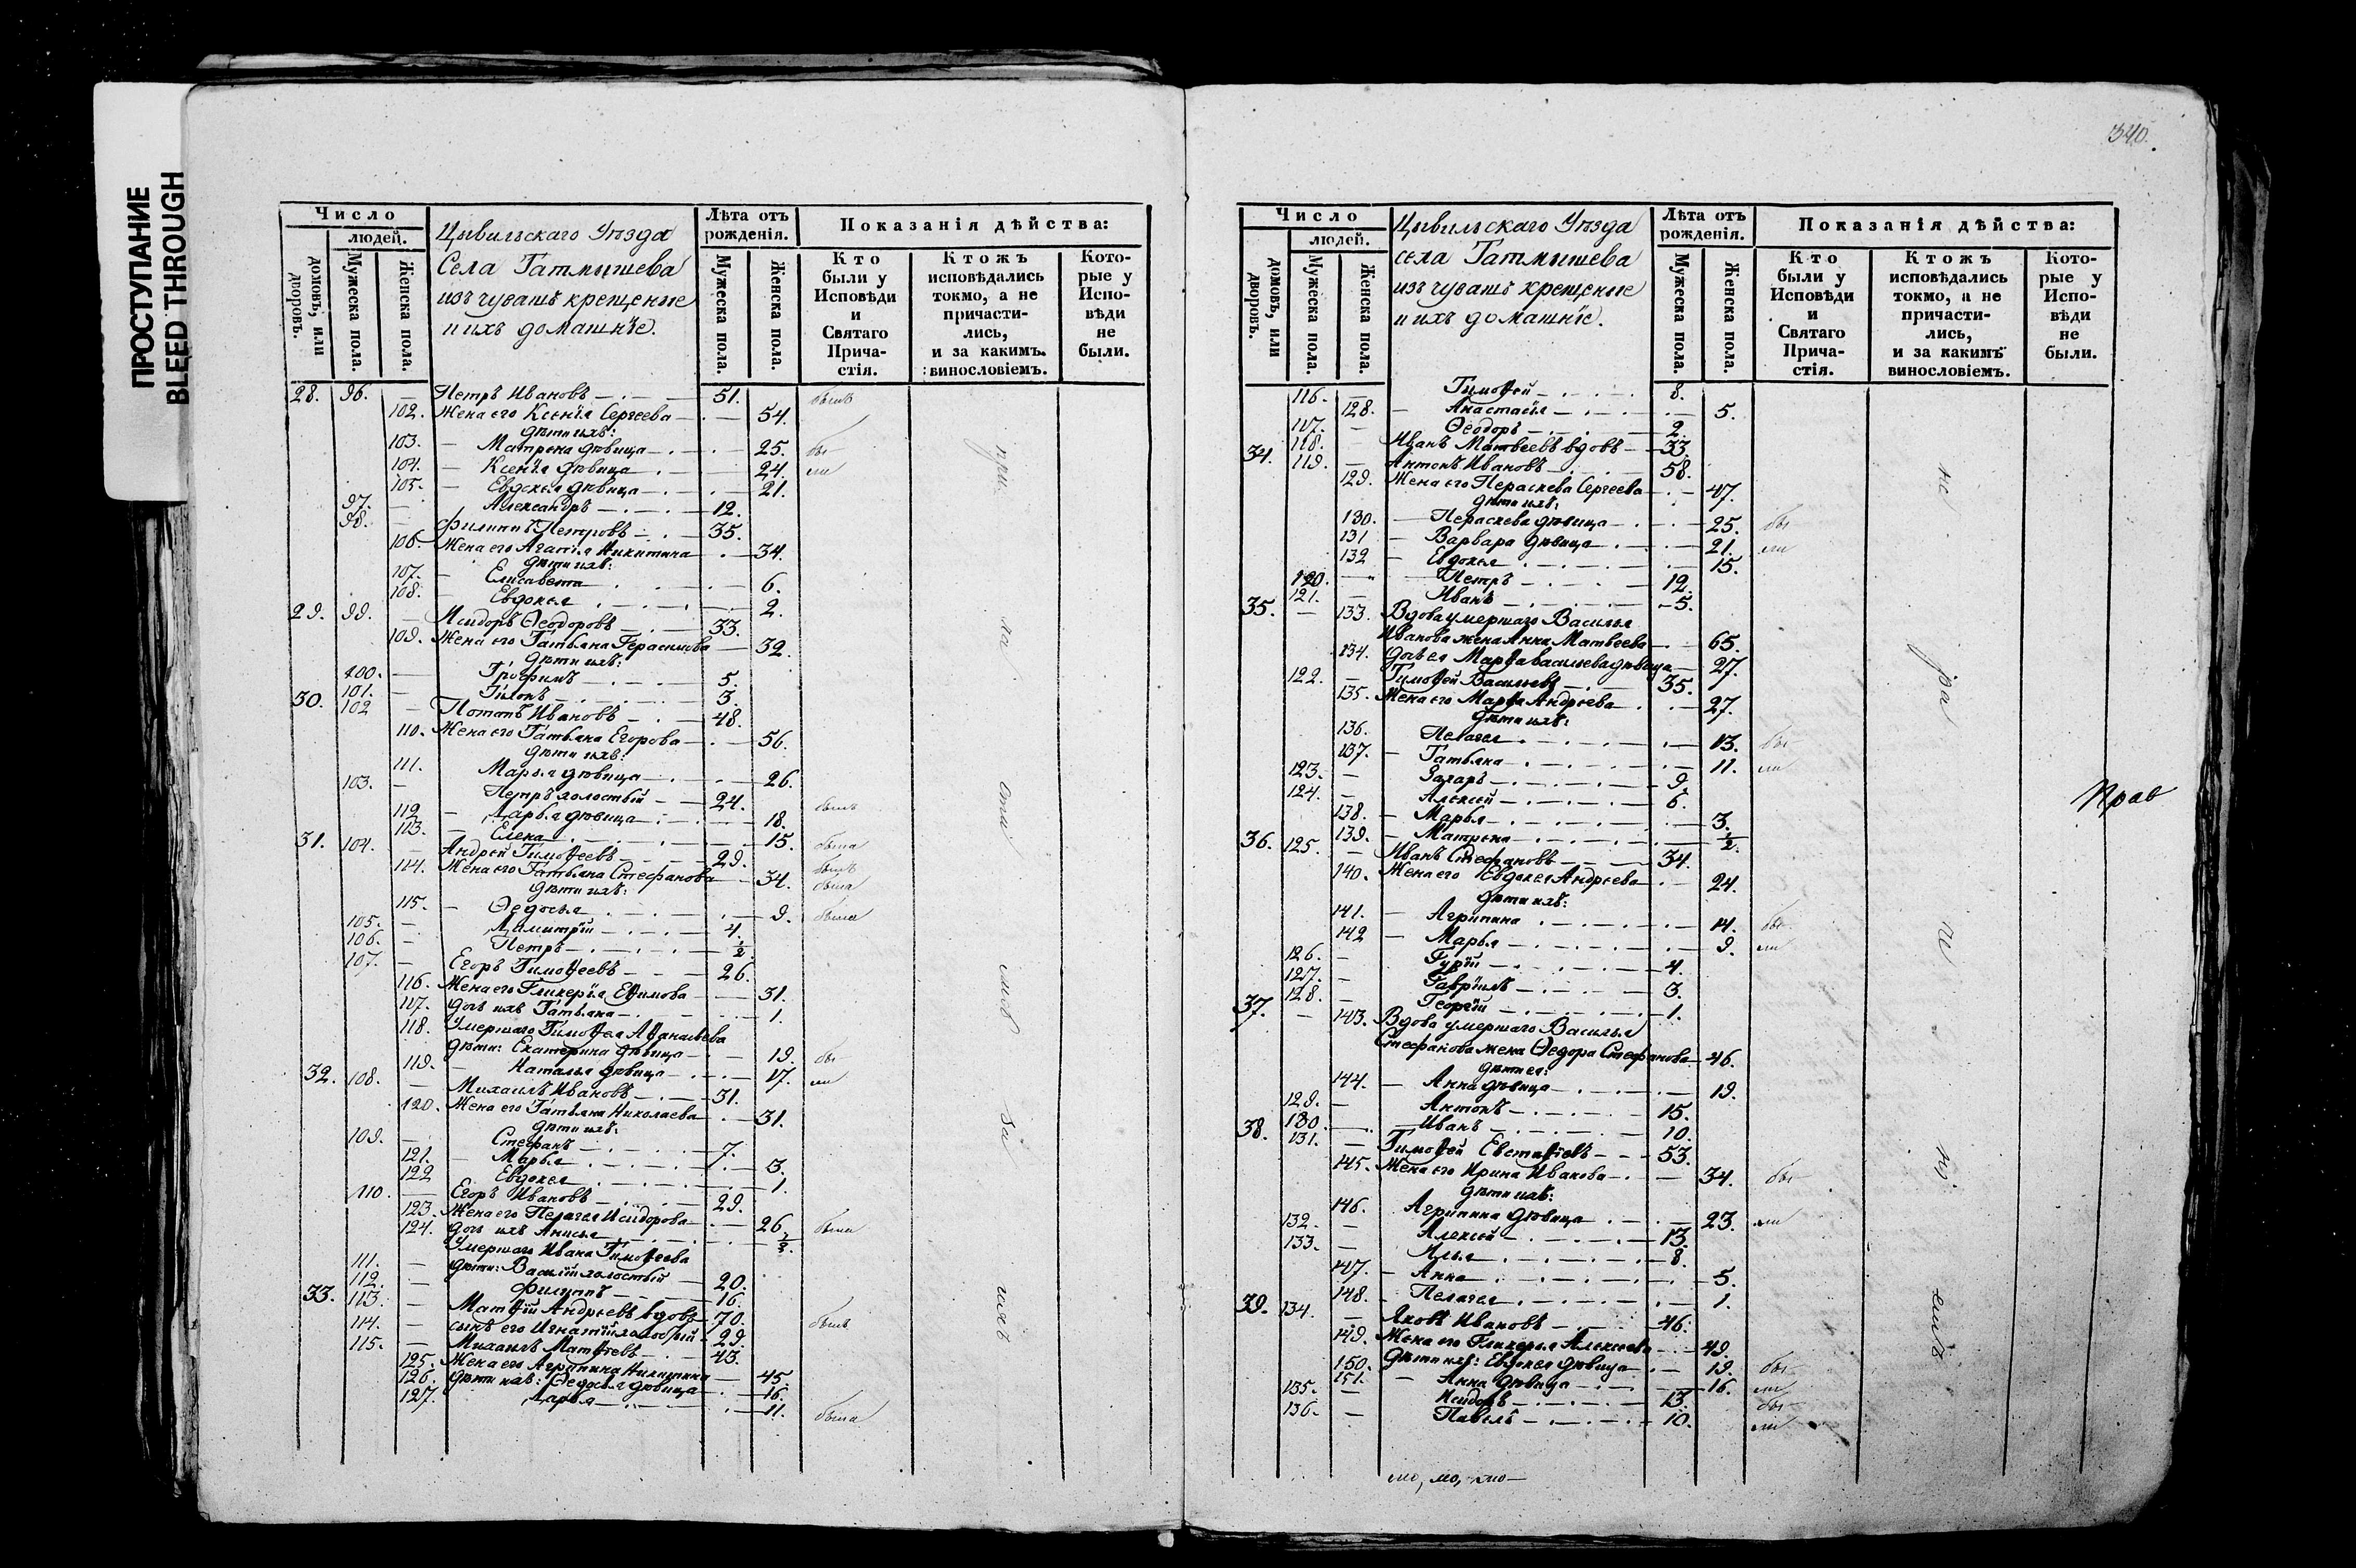 ПРОСТУПАНИЕ
BLEED THROUGH
Число
людей.
домовъ, или дворовъ.
Мужеска пола.
Женска пола.
Цывильскаго Уѣзда
Села Татмышева
изъ чувашъ крещеные
и ихъ домашнїе.
Лѣта отъ рожденія.
Мужеска пола.
Женска пола.
Показанія дѣйства:
Кто были у Исповѣди и Святаго Прича-стія.
Ктожъ исповѣдались токмо, а не причасти-лись, и за какимъ винословіемъ.
Кото-рые у Испо-вѣди не были.
28. 96. — Петръ Ивановъ — 51. бымъ
102. Жена его Ксенїя Сергеева — 54.
дѣти ихъ:
103. — Матрена дѣвица — 25. бы
104. — Ксенїя дѣвица — 24. ли
105. — Евдокья дѣвица — 21.
97. — Александръ — 12.
98. — Филиппъ Петровъ — 35.
106. Жена его Агатїя Никитина — 34.
дѣти ихъ:
107. — Елисавета — 6.
108. — Евдокья — 2.
29. 99. — Исидоръ Ѳеодоровъ — 33.
109. Жена его Татьяна Герасимова — 32.
дѣти ихъ:
100. — Трофимъ — 5.
101. — Тихонъ — 3.
30. 102 — Потапъ Ивановъ — 48.
110. Жена его Татьяна Егорова — 56.
дѣти ихъ:
111. Марья дѣвица — 26.
103. — Петръ холостый — 24. бымъ
112 — Дарья дѣвица — 18.
113. — Елена — 15. была
31. 104. — Андрей Тимоѳеевъ — 29. бымъ
114. Жена его Татьяна Стефанова — 34. была
дѣти ихъ:
115. — Ѳедосья — 9. была
105. — Димитрїй — 4.
106. — Петръ — 1/2
107. — Егоръ Тимоѳеевъ — 26.
116. Жена его Гликерїя Еѳимова — 31.
117. дочь ихъ Татьяна — 1.
118. Умершаго Тимоѳея Аѳанасьева
дѣти: Екатерина дѣвица — 19. бы
119. — Наталья дѣвица — 17. ли
32. 108. — Михаилъ Ивановъ — 31.
120. Жена его Татьяна Николаева — 31.
дѣти ихъ:
109. — Стефанъ — 7.
121. — Марья — 3.
122 Евдокея — 1.
110. — Егоръ Ивановъ — 29.
123. Жена его Пелагея Исидорова — 26. была
124. дочь ихъ Анисья —
Умершаго Ивана Тимоѳеева
111. — дѣти: Василїй холостый — 20.
112. — Филиппъ — 16.
33. 113. — Матѳїй Андреевъ вдовъ — 70.
114. — сынъ его Игнатїй холостый — 29. бымъ
115. — Михаилъ Матѳеевъ — 43.
125. Жена его Агрипина Никитина — 45.
126. дѣти ихъ: Ѳедосья дѣвица — 16.
127. Дарья — 11. была
340.
Число
людей.
домовъ, или дворовъ.
Мужеска пола.
Женска пола.
Цывильскаго Уѣзда
села Татмышева
изъ чувашъ крещеные
и ихъ домашнїе.
Лѣта отъ рожденія.
Мужеска пола.
Женска пола.
Показанія дѣйства:
Кто были у Исповѣди и Святаго Прича-стія.
Ктожъ исповѣдались токмо, а не причасти-лись, и за какимъ винословіемъ.
Кото-рые у Испо-вѣди не были.
116. — Тимоѳей — 8.
128. — Анастасїя — 5.
117. — Ѳеодоръ — 2.
118. — Иванъ Матвеевъ вдовъ — 33.
34. 119. — Антонъ Ивановъ — 58.
129. Жена его Пераскева Сергеева — 47.
дѣти ихъ:
130. — Пераскева дѣвица — 25. бы
131 — Варвара дѣвица — 21. ли
132 — Евдокья — 15.
120. — Петръ — 12.
121. — Иванъ — 5.
35. — 133. Вдова умершаго Василья
Иванова жена Анна Матвеева — 65.
134. дочь ея Марѳа Васильева дѣвица — 27.
122. — Тимоѳей Васильевъ — 35.
135. Жена его Марѳа Андреева — 27.
дѣти ихъ:
136. Пелагея — 13. бы
137. — Татьяна — 11. ли
123. — Захаръ — 9.
124. — Алексей — 6.
138. — Марья — 3.
139. — Матрена — 1/2.
36. 125. — Иванъ Стефановъ — 34.
140. Жена его Евдокея Андреева — 24.
дѣти ихъ:
141. — Агрипина — 14. бы
142 — Марья — 9. ли
126. — Гурїй — 4.
127. — Гаврїилъ — 3.
128. — Георгїй — 1.
37. — 143. Вдова умершаго Василья
Стефанова жена Ѳедора Стефанова — 46.
дѣти ея:
144. — Анна дѣвица — 19.
129. — Антонъ — 15.
130. — Иванъ — 10.
38. 131. — Тимоѳей Евстаѳїевъ — 53.
145. Жена его Ирина Иванова — 34. бы
дѣти ихъ:
146. Агрипина дѣвица — 23. ли
132. — Алексей — 13.
133. — Илья — 8.
147. — Анна — 5.
148. — Пелагея — 1.
39. 134. — Яковъ Ивановъ — 46.
149. Жена его Гликерья Алексеева — 49.
150. Дѣти ихъ: Евдокея дѣвица — 19. бы
151. — Анна дѣвица — 16. ли
135. — Исидоръ — 13. бы
136. — Павелъ — 10. ли
Прав